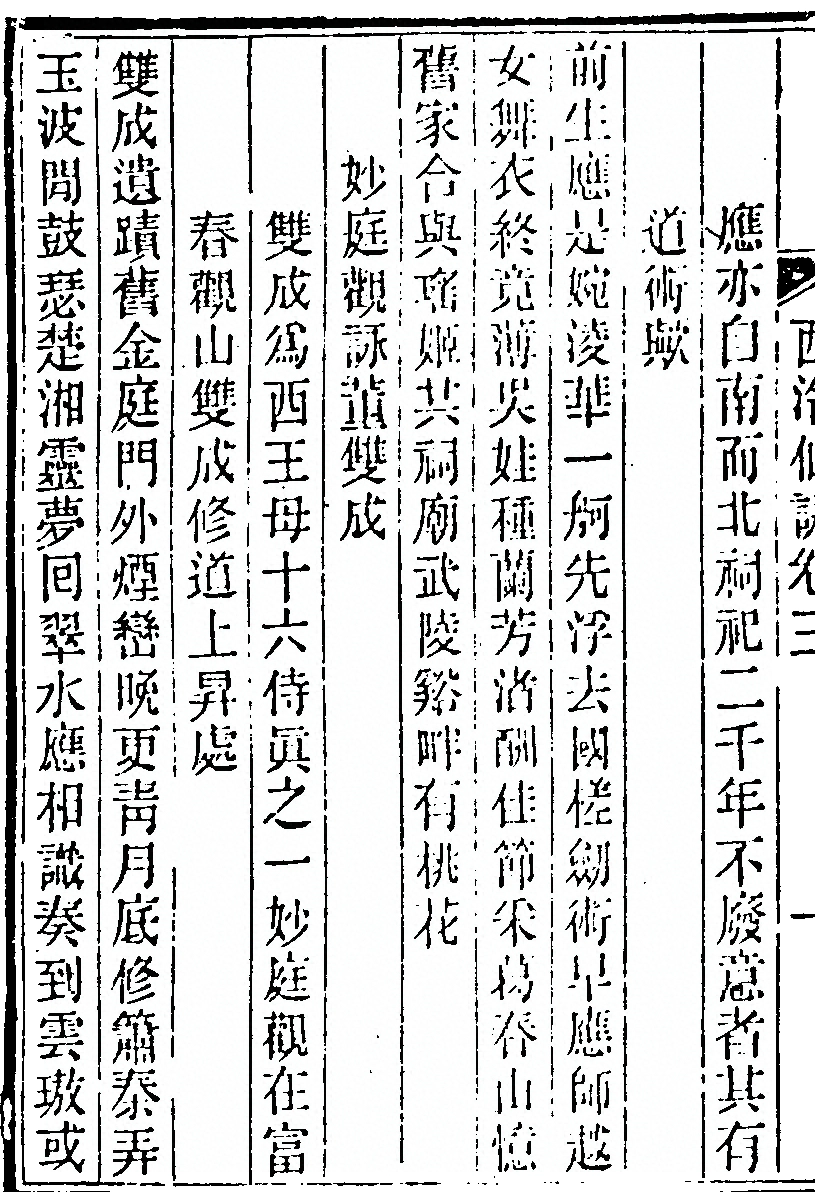 西泠仙詠卷三 一
應亦自南而北祠祀二千年不廢意者其有
道術歟
前生應是婉淩華一舸先浮去國槎劒術早應師越
女舞衣終竟薄吳娃種蘭芳渚酬佳節采葛春山憶
舊家合與瑤姬共祠廟武陵谿畔有桃花
妙庭觀詠董雙成
雙成爲西王母十六侍眞之一妙庭觀在富
春觀山雙成修道上昇處
雙成遺蹟舊金庭門外煙巒晚更靑月底修簫秦弄
玉波閒鼓瑟楚湘靈夢回翠水應相識奏到雲璈或